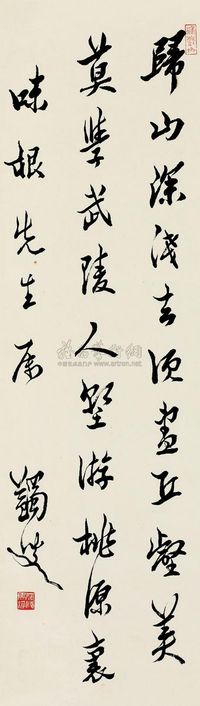 歸山深淺去須盡丘壑美
莫學武陵人暫游桃源裏
味根先生屬 蠲叟